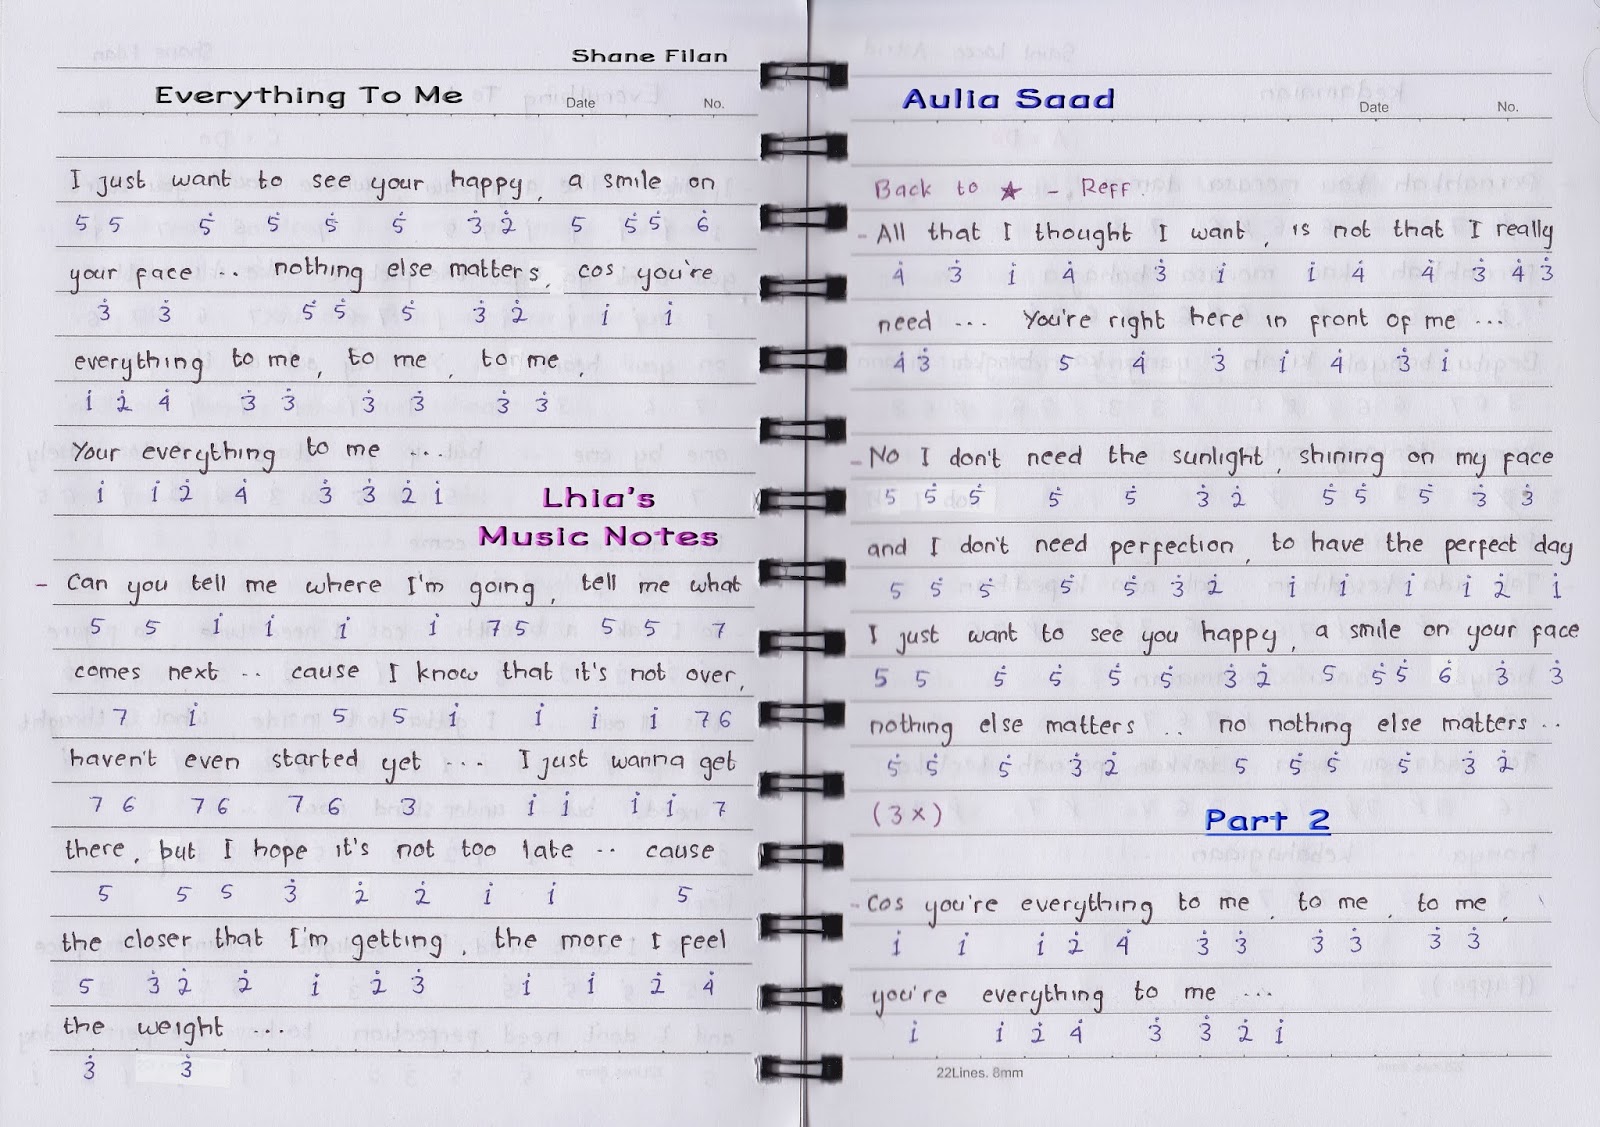 Shane Filan
Everything To Me
Date No.
I just want to see your happy, a smile on
5 5 5̇ 5̇ 5̇ 5̇ 3̇ 2̇ 5 5̇ 5̇ 6̇
your face .. nothing else matters, cos you're
3̇ 3̇ 5̇ 5̇ 5̇ 3̇ 2̇ 1̇ 1̇
everything to me, to me, to me,
1̇ 2̇ 4̇ 3̇ 3̇ 3̇ 3̇ 3̇ 3̇
Your everything to me ...
1̇ 1̇ 2̇ 4̇ 3̇ 3̇ 2̇ 1̇
Lhia's
Music Notes
- Can you tell me where I'm going, tell me what
5 5 1̇ 1̇ 1̇ 1̇ 7 5 5 5 7
comes next .. cause I know that it's not over,
7 1̇ 5 5 1̇ 1̇ 1̇ 1̇ 7 6
haven't even started yet ... I just wanna get
7 6 7 6 7 6 3 1̇ 1̇ 1̇ 1̇ 7
there, but I hope it's not too late .. cause
5 5 5 3̇ 2̇ 2̇ 1̇ 1̇ 5
the closer that I'm getting, the more I feel
5 3̇ 2̇ 2̇ 1̇ 2̇ 3̇ 1̇ 1̇ 2̇ 4̇
the weight ...
3̇ 3̇
Aulia Saad
Date No.
Back to ★ - Reff.
- All that I thought I want, is not that I really
4̇ 3̇ 1̇ 4̇ 3̇ 1̇ 1̇ 4̇ 4̇ 3̇ 4̇ 3̇
need ... You're right here in front of me ...
4̇ 3̇ 5 4̇ 3̇ 1̇ 4̇ 3̇ 1̇
- No I don't need the sunlight, shining on my face
5 5̇ 5̇ 5̇ 5̇ 3̇ 2̇ 5̇ 5̇ 5̇ 3̇ 3̇
and I don't need perfection, to have the perfect day
5 5̇ 5̇ 5̇ 5̇ 3̇ 2̇ 1̇ 1̇ 1̇ 1̇ 2̇ 1̇
I just want to see you happy, a smile on your face
5 5 5̇ 5̇ 5̇ 5̇ 3̇ 2̇ 5 5̇ 5̇ 6̇ 3̇ 3̇
nothing else matters .. no nothing else matters ..
5̇ 5̇ 5̇ 3̇ 2̇ 5 5̇ 5̇ 5̇ 3̇ 2̇
(3x)
Part 2
- Cos you're everything to me, to me, to me,
1̇ 1̇ 1̇ 2̇ 4̇ 3̇ 3̇ 3̇ 3̇ 3̇ 3̇
you're everything to me ...
1̇ 1̇ 2̇ 4̇ 3̇ 3̇ 2̇ 1̇
22Lines. 8mm